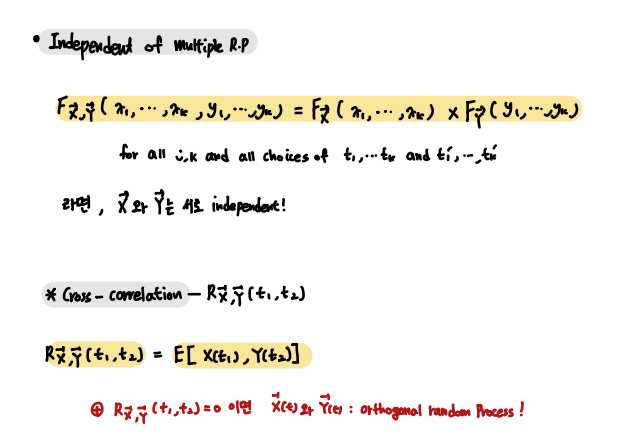 • Independent of multiple R.P
F_{\vec{X},\vec{Y}}(x_1,⋯,x_k,y_1,⋯,y_k) = F_{\vec{X}}(x_1,⋯,x_k) × F_{\vec{Y}}(y_1,⋯,y_k)
for all j,k and all choices of t_1,⋯t_k and t_1',⋯,t_k'
라면, \vec{X}와 \vec{Y}는 서로 independent!
* Cross-correlation – R_{\vec{X},\vec{Y}}(t_1,t_2)
R_{\vec{X},\vec{Y}}(t_1,t_2) = E[X(t_1),Y(t_2)]
⊕ R_{\vec{X},\vec{Y}}(t_1,t_2)=0 이면 \vec{X}(t)와 \vec{Y}(t) : orthogonal random Process!